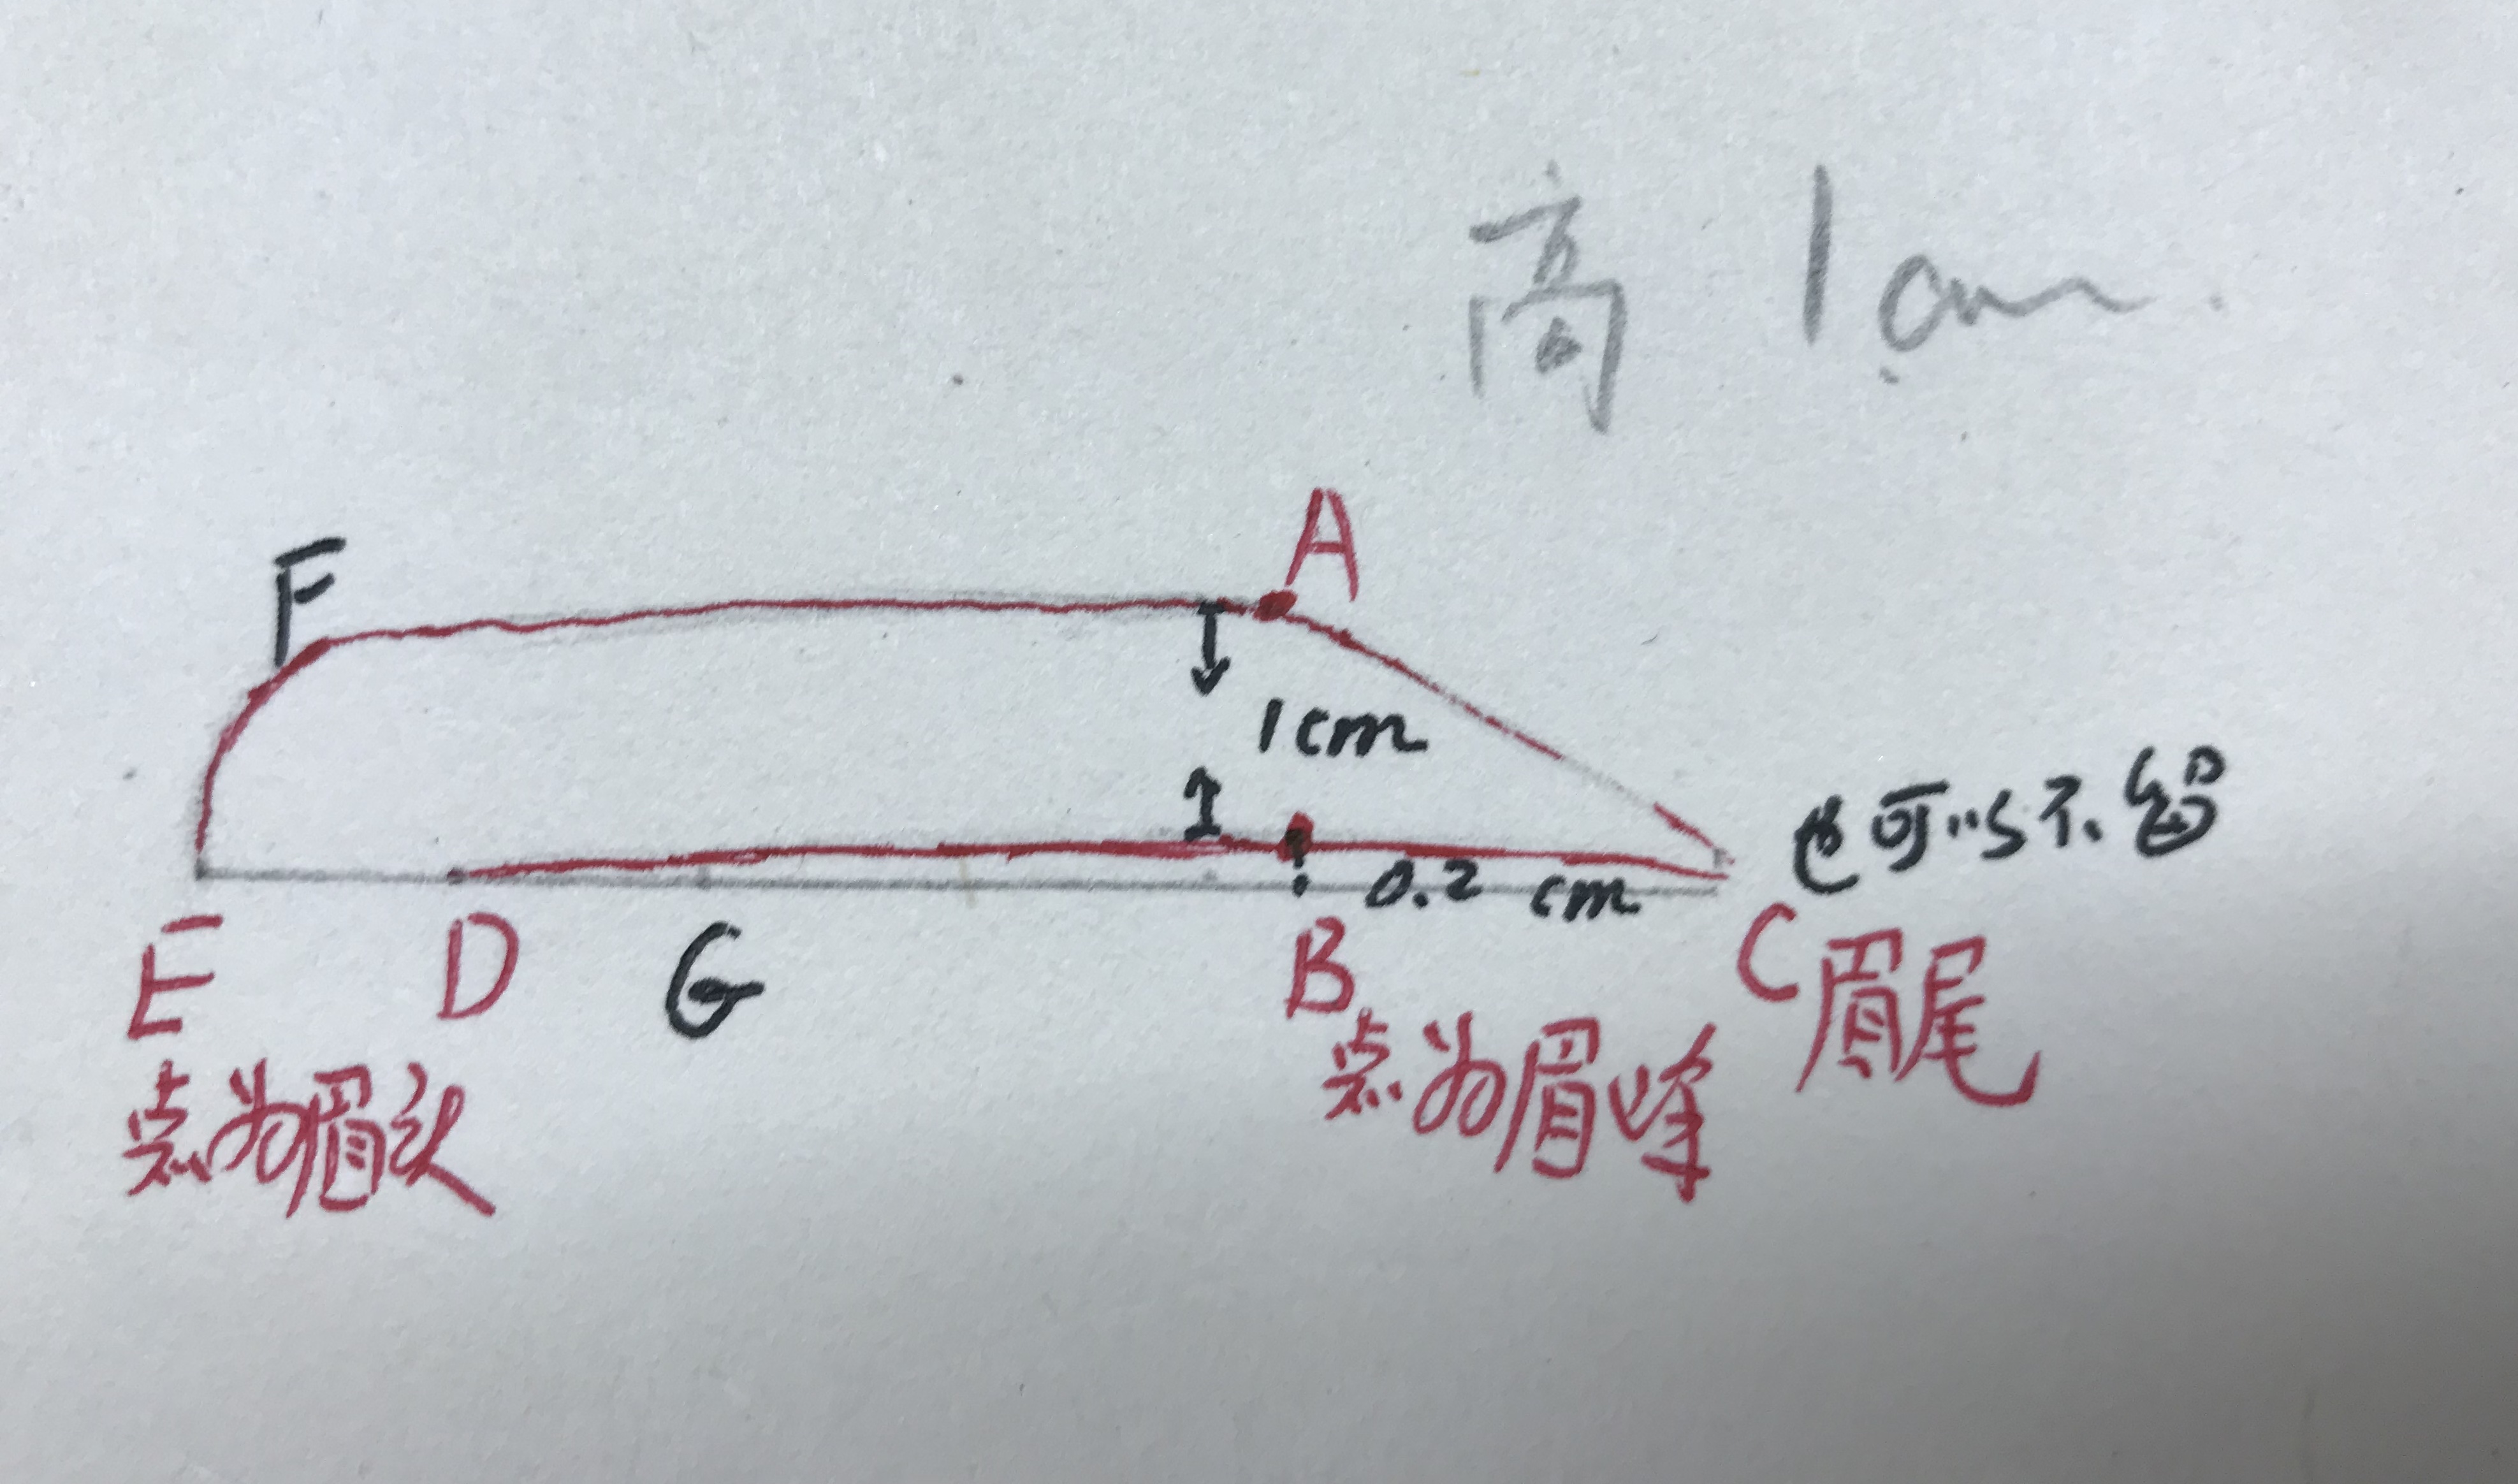 高 1cm.
A
F
1cm
也可以不留
0.2 cm
E D G B C 眉尾
点为眉头 点为眉峰